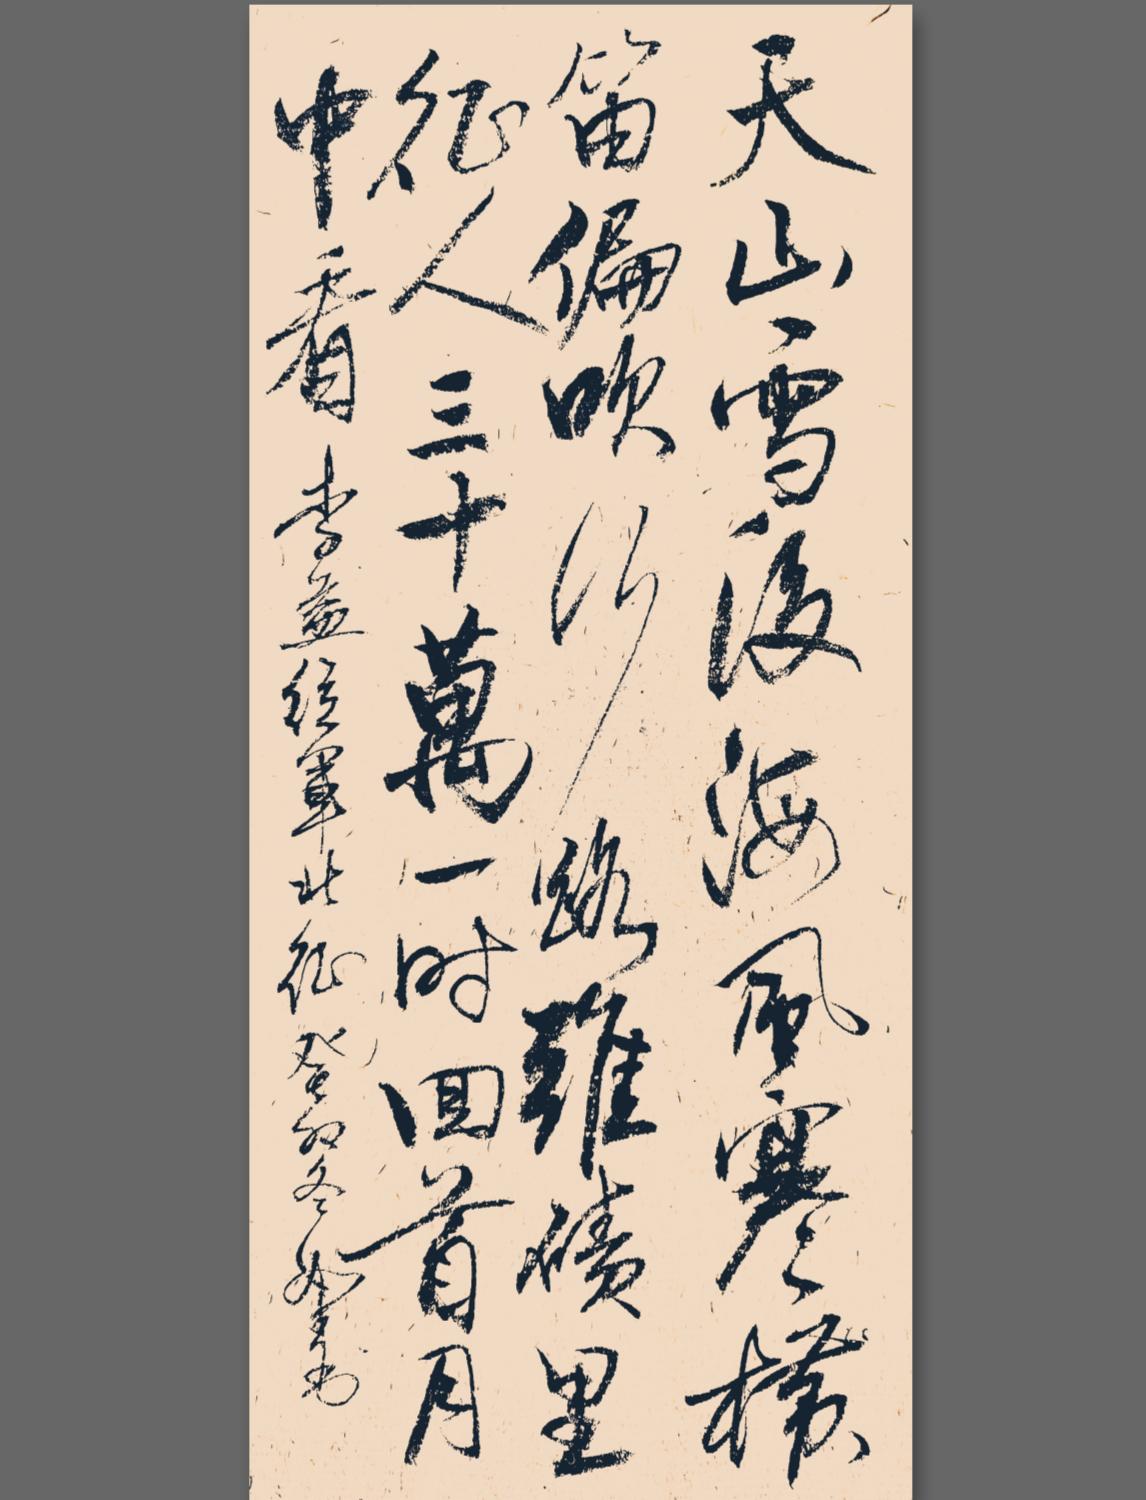 天山雪後海風寒橫
笛偏吹行路難磧里
征人三十萬一时回首月
中看 李益從軍北征 癸卯冬 書